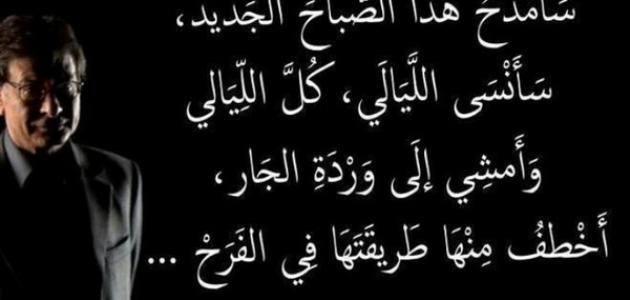 سَأمدَحُ هَذَا الصَّبَاحَ الجَديد،
سَأَنْسَى اللَّيَالَي، كُلَّ اللِّيَالي
وَأَمشِي إلَى وَرْدَةِ الجَار،
أَخْطفُ مِنْهَا طَريقَتَهَا فِي الفَرَحْ ...